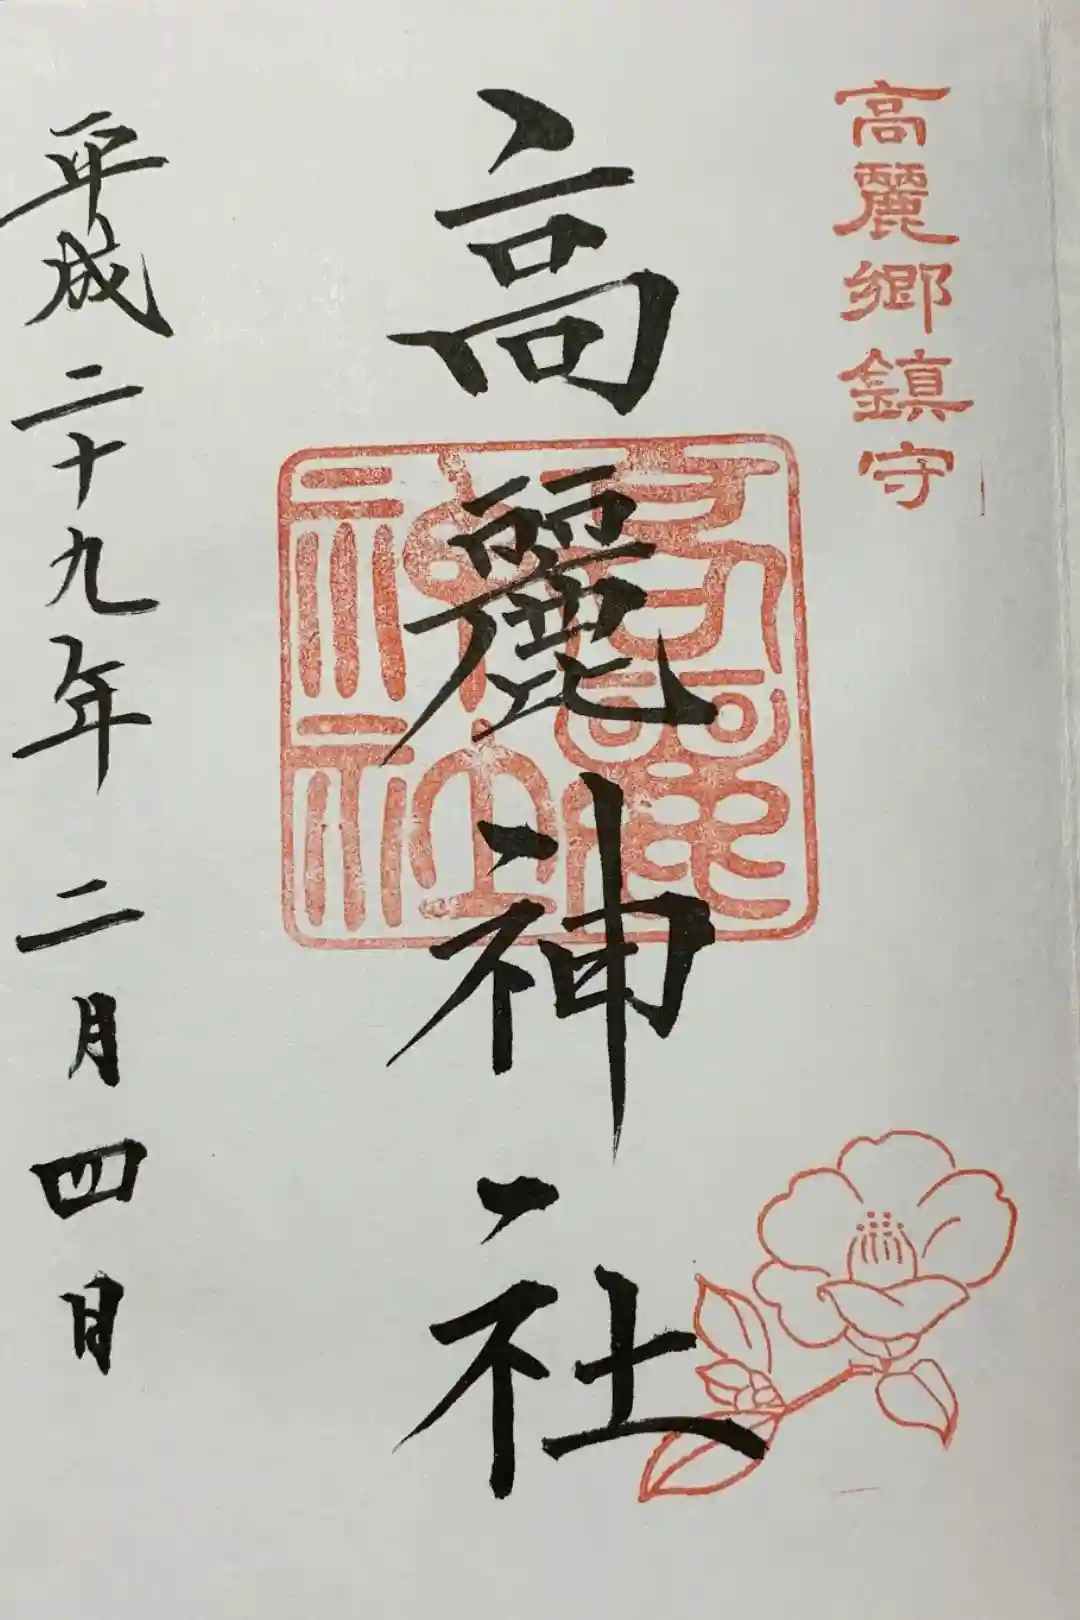 高麗郷鎮守
高麗神社
高麗神社
平成二十九年二月四日